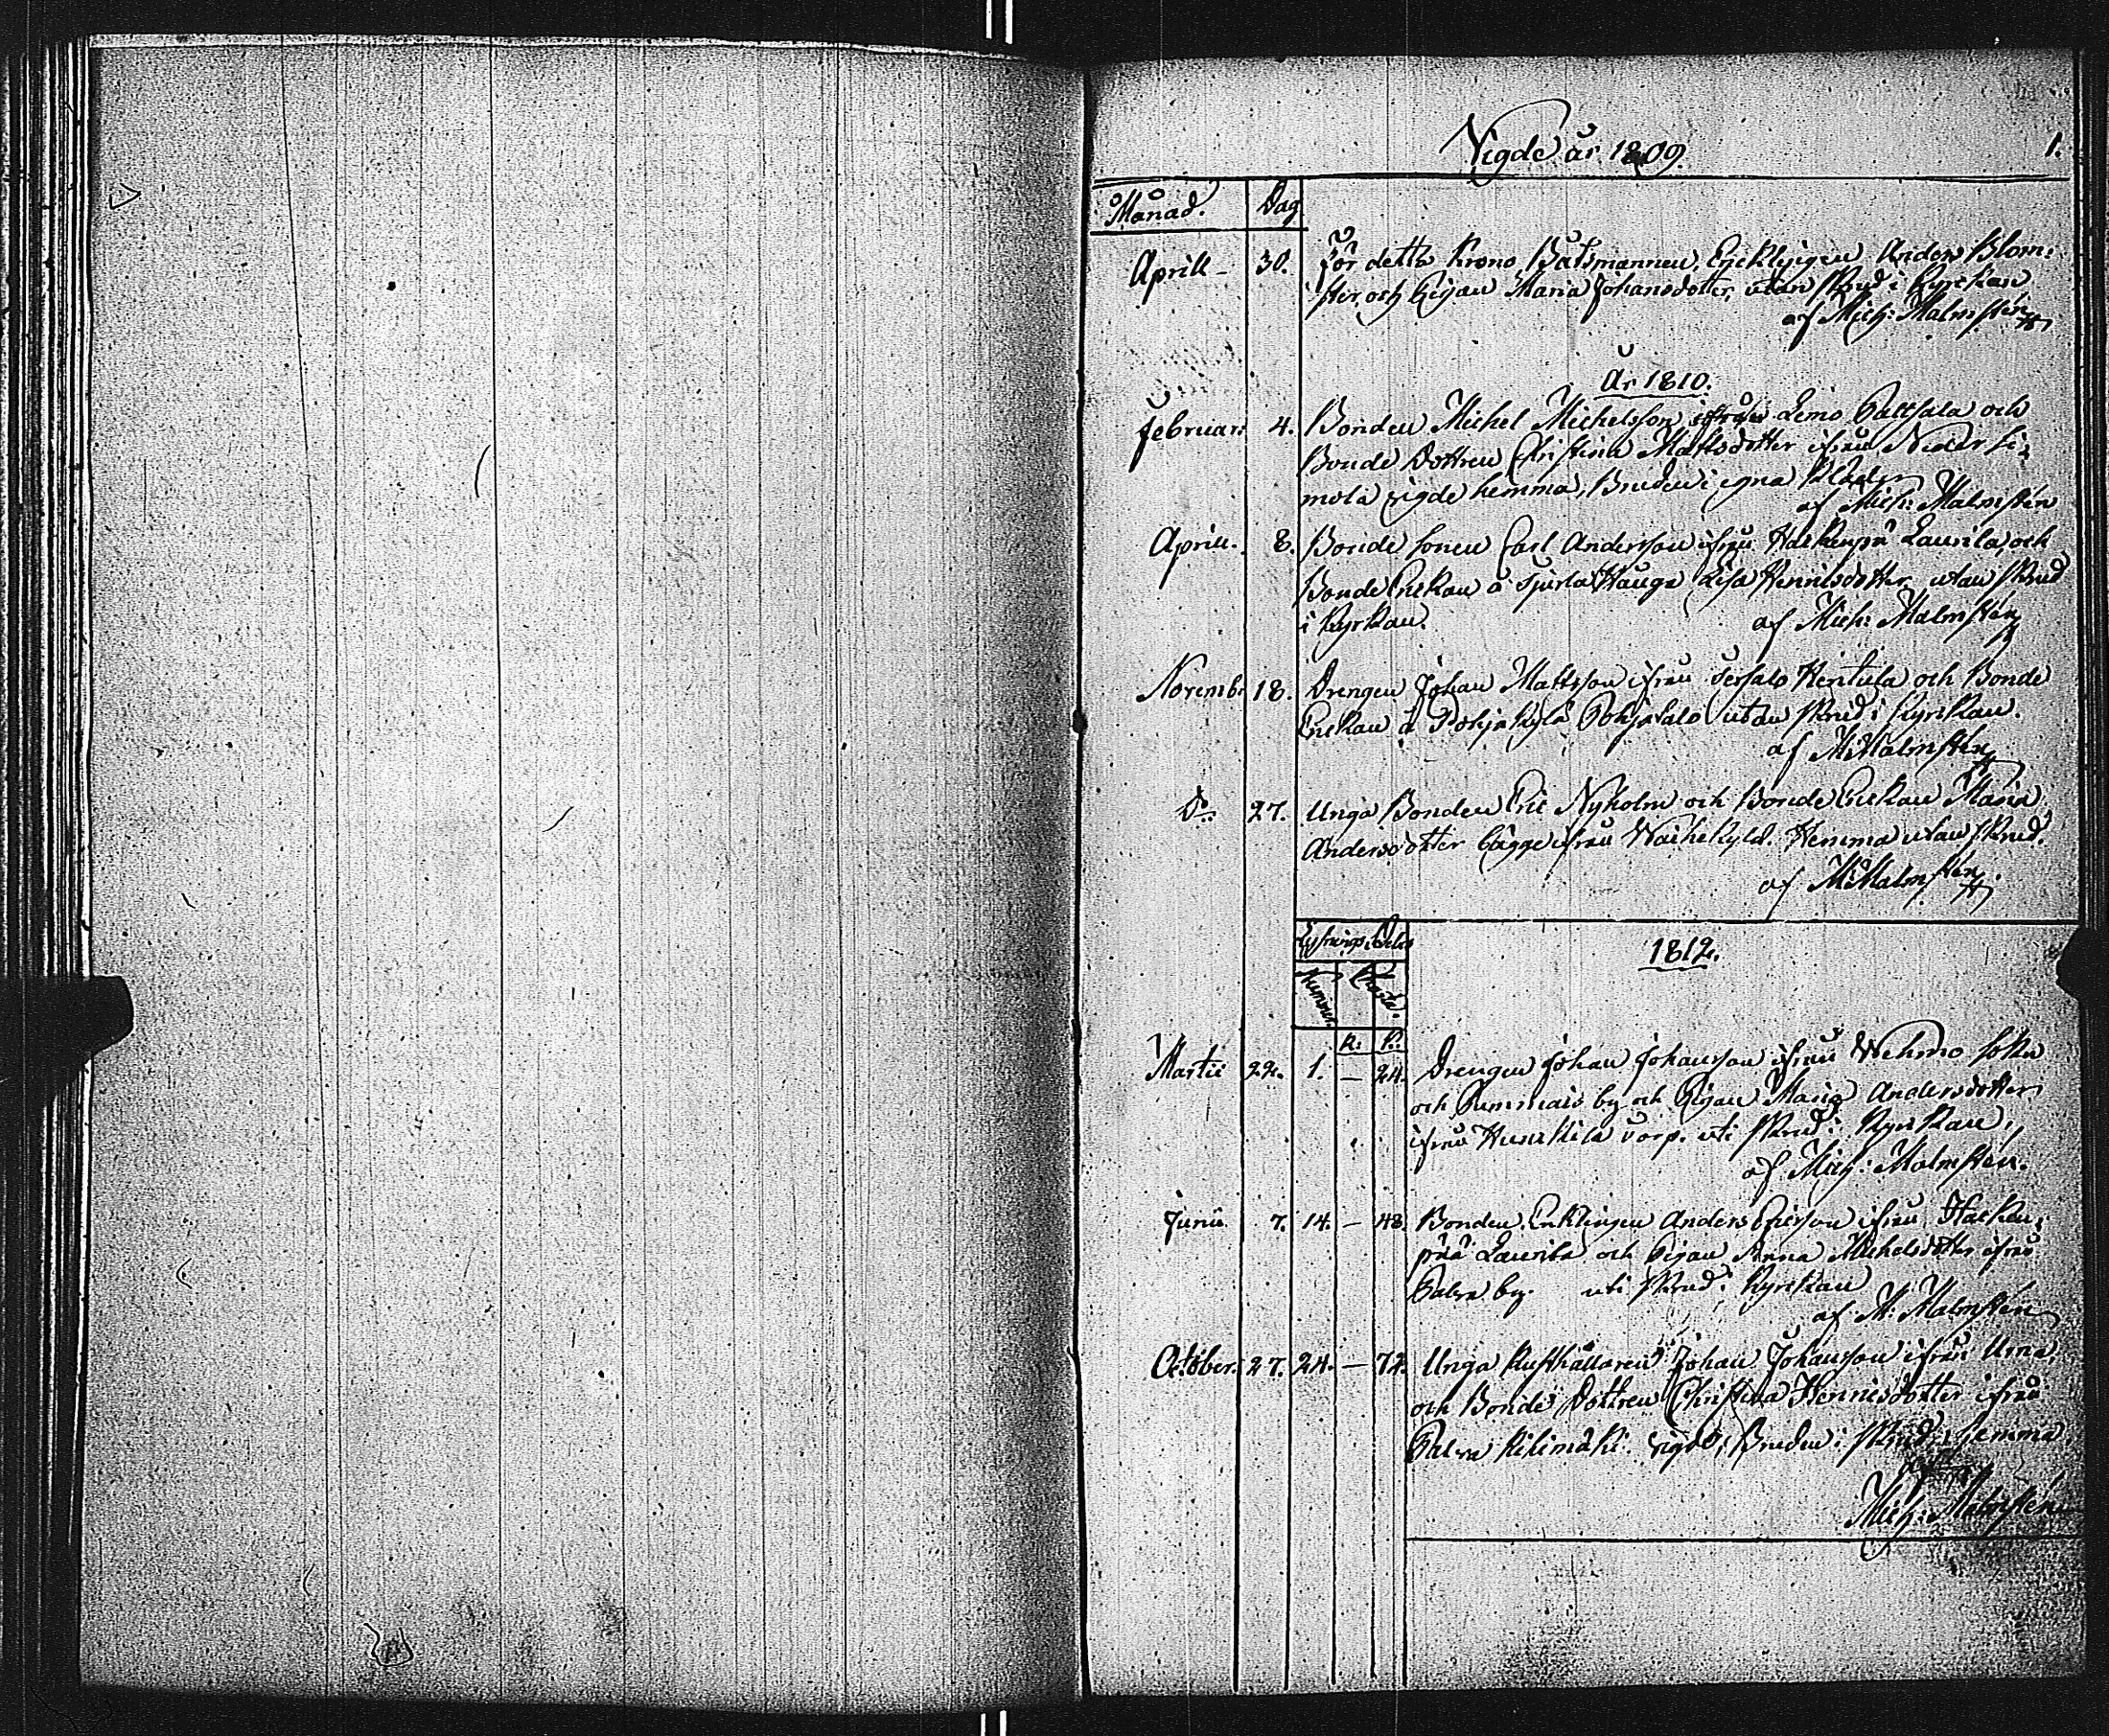 Vigde år 1809.
1.
Månad. Dag
Aprill 30. För detta Krono Båtsmannen, Encklingen Anders Blom-
ster och Pigan Maria Johansdotter, utan skrud i Kyrkan
af Mich: Malmstén
År 1810.
Februar: 4. Bonden Michel Michelsson ifrån Lemo Pattsala och
Bonde Dottren Christina Mattsdotter ifrån Neder
mola vigde hemma, Bruden i egna Kläder
af Mich: Malmstén
Aprill. 8. Bonde Sonen Carl Andersson ifrån Haukenpä Laurila, och
Bonde Enkan å Hauga Lisa Henricsdotter utan skrud
i Kyrkan. af Mich: Malmstén
Novemb: 18. Drengen Johan Mattsson ifrån Hentula och Bonde
Enkan å Pohjakylä Pohjatalo utan skrud i Kyrkan.
af M: Malmstén
Do 27. Unga Bonden Eric Nyholm och Bonde Enckan Maria
Andersdotter ifrån Waihekylä. Hemma utan skrud.
af M: Malmstén
Lysnings
1812.
Nummer
R. K.
Martii 22. 1. — 24. Drengen Johan Johansson ifrån Wehmo Sokn
och by och Pigan Maria Andersdotter
ifrån torp. uti skrud i Kyrkan,
af Mich: Malmstén.
Junii 7. 14. — 48. Bonden, Enklingen Anders Ericsson ifrån Hauken-
pää Laurila och Pigan Anna Michelsdotter ifrån
Palva by. uti skrud i Kyrkan
af M: Malmstén
October. 27. 24. — 72. Unga Rusthållaren Johan Johansson ifrån
och Bonde Dottren Christina Henricsdotter ifrån
Palva vigde, Bruden i skrud, hemma
Mich: Malmstén